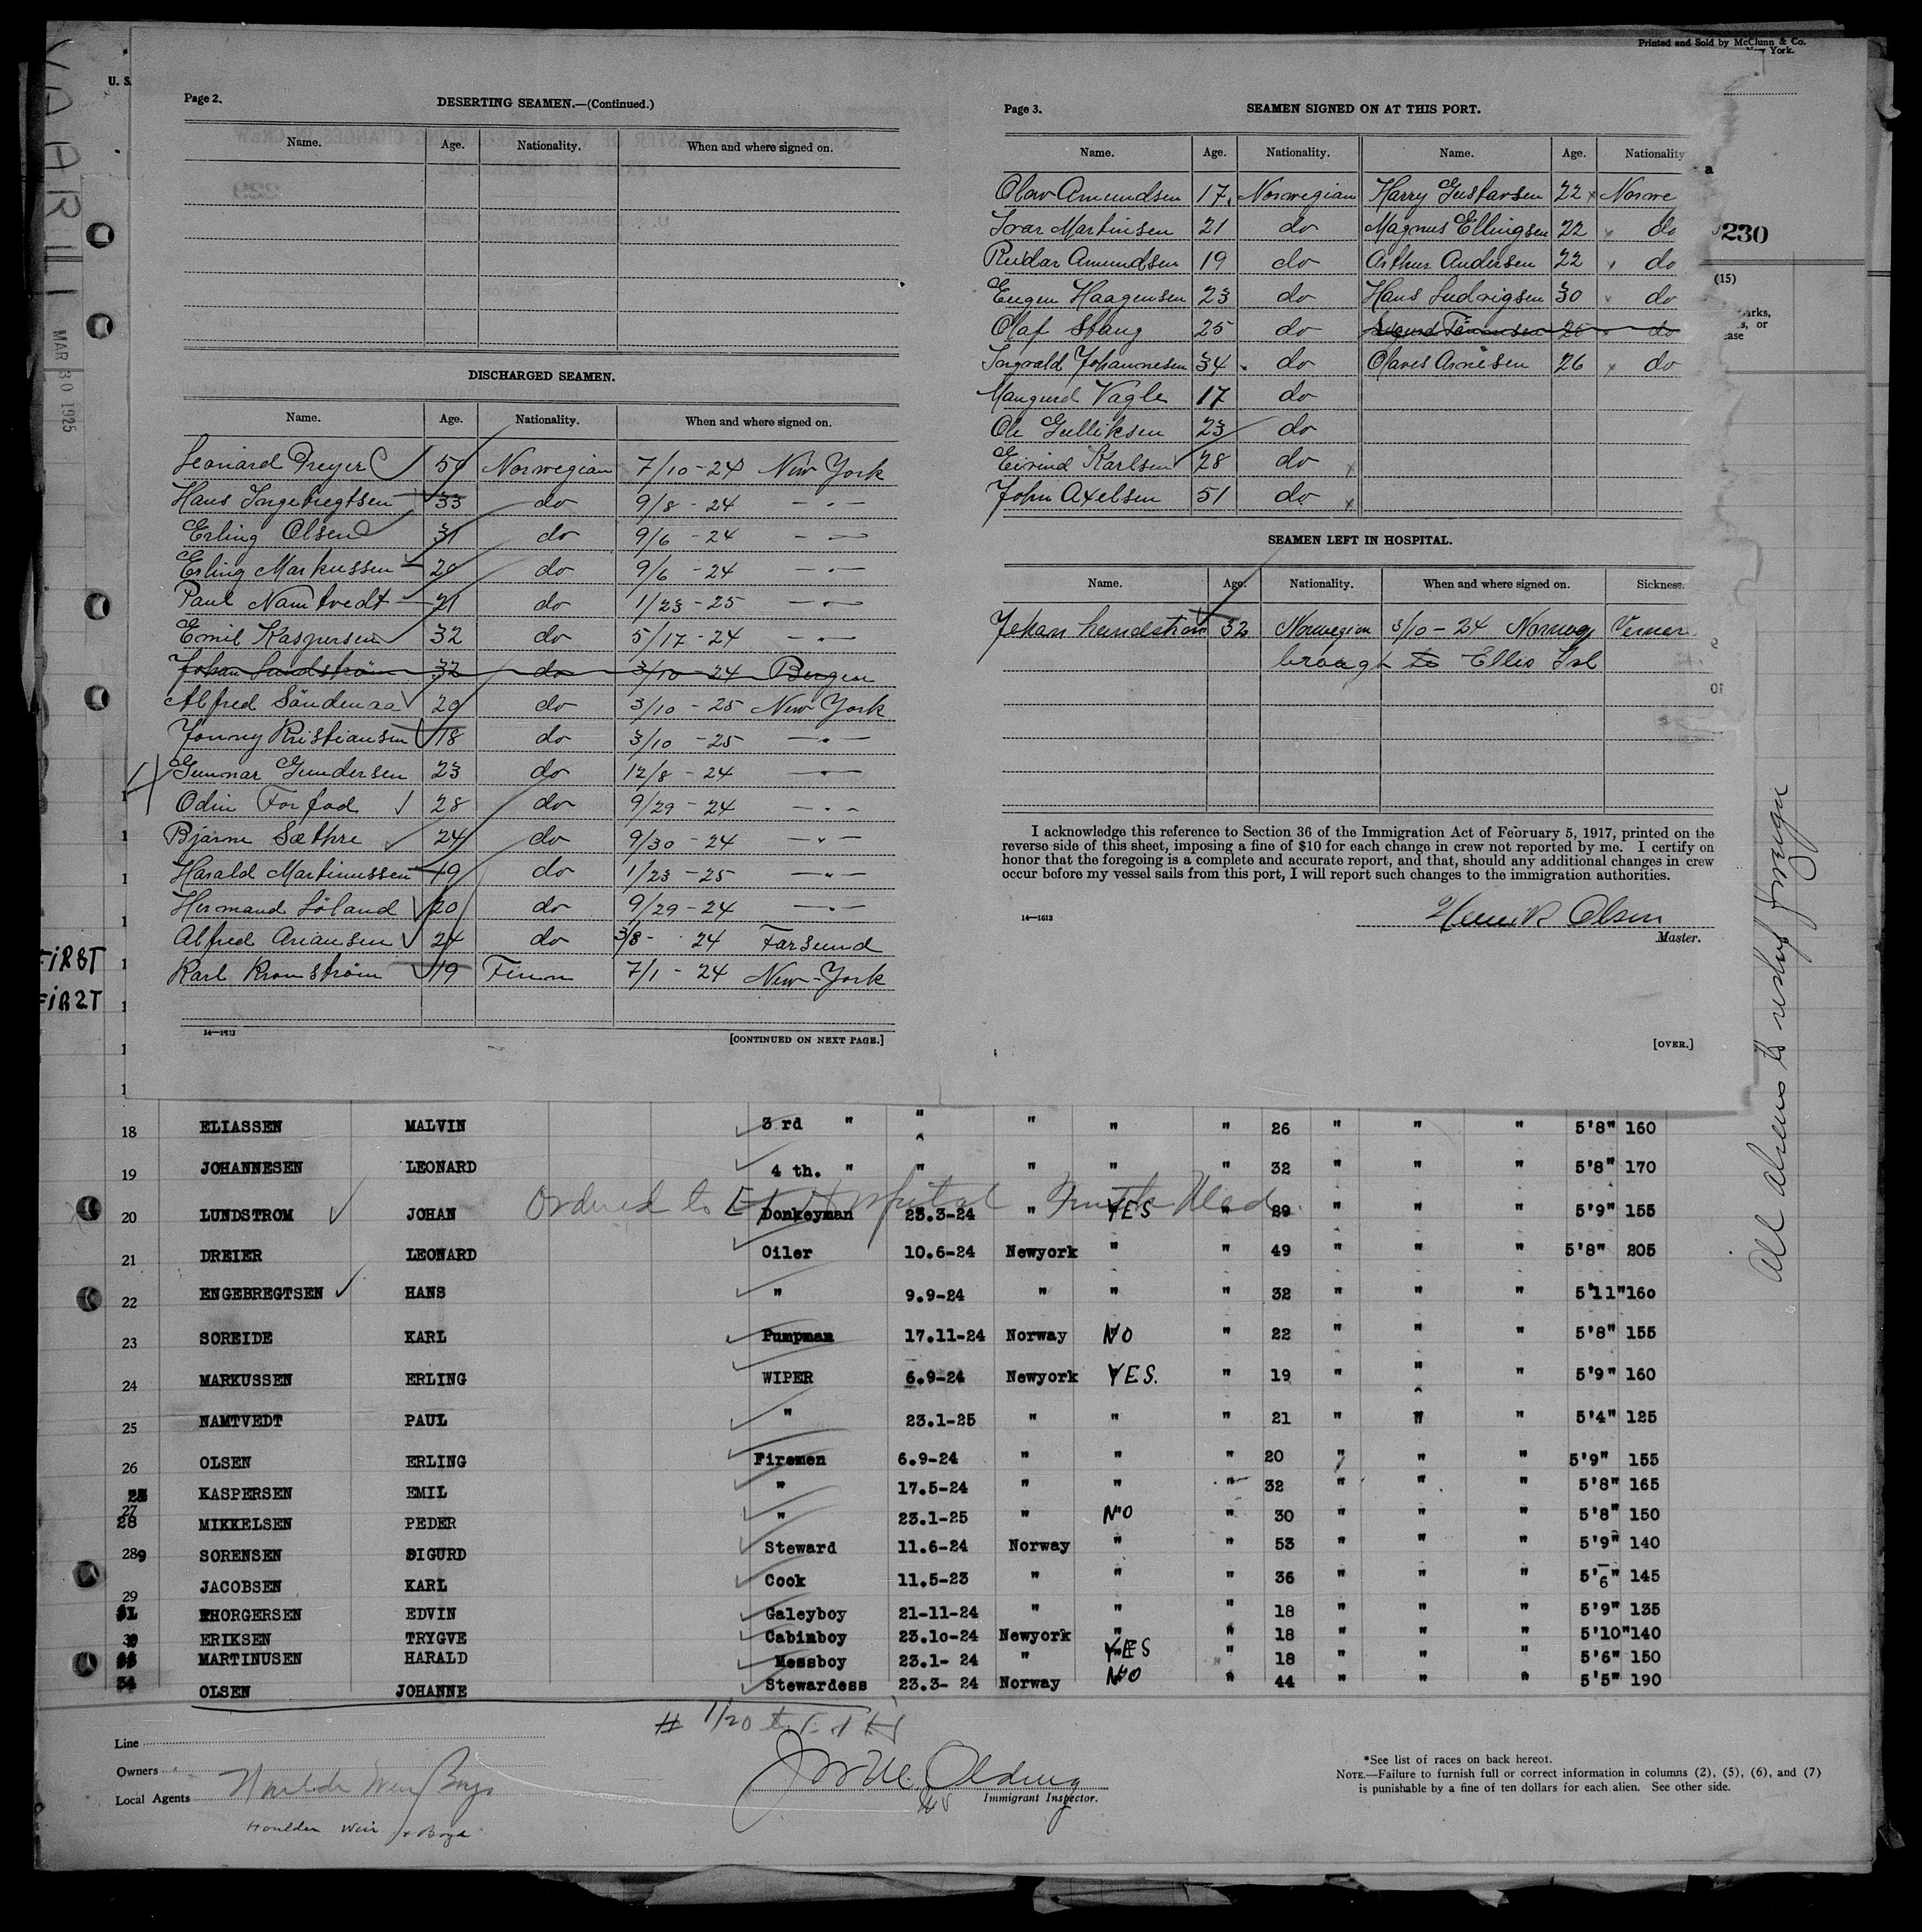 Printed and Sold by McClunn & Co.
York.
U. S.
Page 2.
DESERTING SEAMEN.—(Continued.)
Name. Age. Nationality. When and where signed on.
DISCHARGED SEAMEN.
Name. Age. Nationality. When and where signed on.
Leonard Dreyer 50 Norwegian 7/10-24 New York
Hans Ingebregtsen 33 do 9/8-24 — " —
Erling Olsen 31 do 9/6-24 — " —
Erling Markussen 20 do 9/6-24 — " —
Paul Namtvedt 21 do 1/23-25 — " —
Emil Kaspersen 32 do 5/17-24 — " —
Johan Lundström 32 do 3/10-24 Bergen
Alfred Söndenaa 29 do 3/10-25 New York
Jonny Kristiansen 18 do 3/10-25 — " —
Gunnar Gundersen 23 do 12/8-24 — " —
Odin Forfod 28 do 9/29-24 — " —
Bjarne Sæthre 24 do 9/30-24 — " —
Harald Martinussen 19 do 1/23-25 — " —
Hermand Löland 20 do 9/29-24 — " —
Alfred Ariansen 24 do 3/8-24 Farsund
Karl Kronström 19 Finn 7/1-24 New York
14—1613
[CONTINUED ON NEXT PAGE.]
Page 3.
SEAMEN SIGNED ON AT THIS PORT.
Name. Age. Nationality. Name. Age. Nationality
Olav Amundsen 17 Norwegian Harry Gustavsen 22 x Norwe
Ivar Martinsen 21 do Magnus Ellingsen 22 x do
Reidar Amundsen 19 do Arthur Andersen 22 x do
Eugen Haagensen 23 do Hans Ludvigsen 30 x do
Olaf Stang 25 do Sigurd Tönnesen 26 do
Ingvald Johannesen 34 do Olaves Arnesen 26 x do
Mangurd Vagle 17 do
Ole Gulliksen 23 do
Eivind Karlsen 28 do x
John Axelsen 51 do x
SEAMEN LEFT IN HOSPITAL.
Name. Age. Nationality. When and where signed on. Sickness.
Johan Lundström 32 Norwegian 3/10-24 Norway Vener
brough to Ellis Isl
I acknowledge this reference to Section 36 of the Immigration Act of February 5, 1917, printed on the
reverse side of this sheet, imposing a fine of $10 for each change in crew not reported by me. I certify on
honor that the foregoing is a complete and accurate report, and that, should any additional changes in crew
occur before my vessel sails from this port, I will report such changes to the immigration authorities.
14—1613
Henrik Olsen
Master.
[OVER.]
230
(15)
MAR 30 1925
FiRST
FiR2T
18 ELIASSEN MALVIN 3 rd " " " " " 26 " " " 5'8" 160
19 JOHANNESEN LEONARD 4 th. " " " " " 32 " " " 5'8" 170
Ordered to E I Hospital
20 LUNDSTROM JOHAN Donkeyman 23.3-24 " YES " 29 " " " 5'9" 155
21 DREIER LEONARD Oiler 10.6-24 Newyork " " 49 " " " 5'8" 205
22 ENGEBREGTSEN HANS " 9.9-24 " " " 32 " " " 5'11" 160
23 SOREIDE KARL Pumpman 17.11-24 Norway NO " 22 " " " 5'8" 155
24 MARKUSSEN ERLING WIPER 6.9-24 Newyork YES. " 19 " " " 5'9" 160
25 NAMTVEDT PAUL " 23.1-25 " " " 21 " " " 5'4" 125
26 OLSEN ERLING Firemen 6.9-24 " " " 20 " " " 5'9" 155
KASPERSEN EMIL " 17.5-24 " " " 32 " " " 5'8" 165
27
28 MIKKELSEN PEDER " 23.1-25 " NO " 30 " " " 5'8" 150
289 SORENSEN SIGURD Steward 11.6-24 Norway " " 53 " " " 5'9" 140
29 JACOBSEN KARL Cook 11.5-23 " " " 36 " " " 5'6" 145
THORGERSEN EDVIN Galeyboy 21-11-24 " " " 18 " " " 5'9" 135
ERIKSEN TRYGVE Cabinboy 23.10-24 Newyork " " 18 " " " 5'10" 140
MARTINUSEN HARALD Messboy 23.1- 24 " YES " 18 " " " 5'6" 150
34 OLSEN JOHANNE Stewardess 23.3- 24 Norway NO " 44 " " " 5'5" 190
Line
Owners
Local Agents Houlder Weir Boyd
Houlder Weir & Boyd
Immigrant Inspector.
*See list of races on back hereof.
NOTE.—Failure to furnish full or correct information in columns (2), (5), (6), and (7)
is punishable by a fine of ten dollars for each alien. See other side.
All aliens to reship foreign